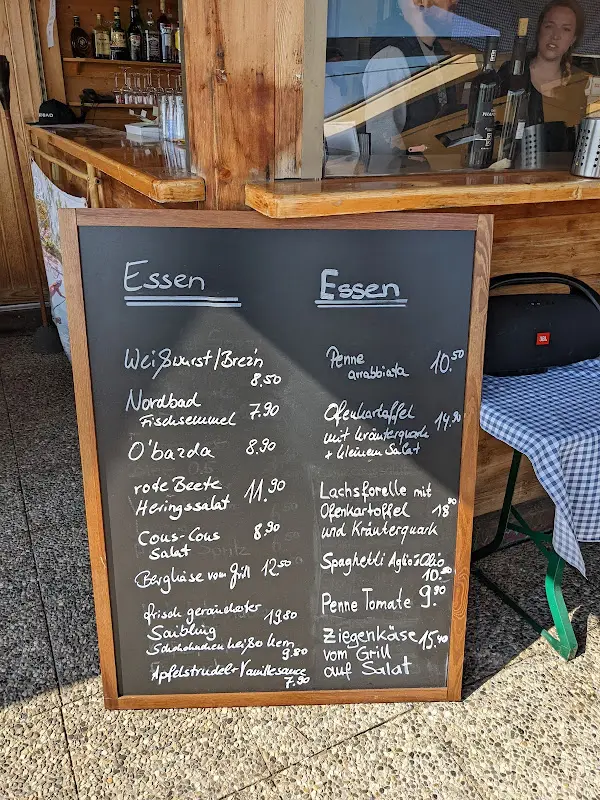 Essen
Weißwurst/Brez'n
8,50
Nordbad
Fischsemmel 7.90
O'bazda 8,90
rote Beete
Heringssalat 11,90
Cous-Cous
Salat 8,90
Bergkäse vom Grill 12,50
frisch geräucherter
Saibling 19,80
Schokokuchen heißer Kern
9.80
Apfelstrudel + Vanillesauce
7.90
Essen
Penne
arrabbiata 10.50
Ofenkartoffel
mit Kräuterquark 14,90
+ kleinen Salat
Lachsforelle mit
Ofenkartoffel 18,90
und Kräuterquark
Spaghetti Aglio + Olio
10.50
Penne Tomate 9.90
Ziegenkäse 15,40
vom Grill
auf Salat
JBL